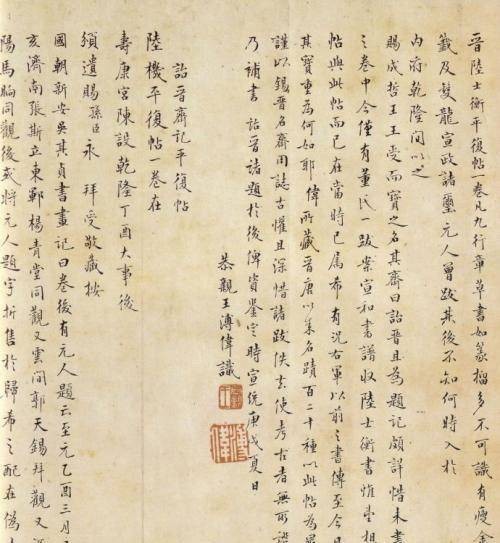 晉陸士衡平復帖一卷凡九行章草書如篆籀多不可識有瘦金
籤及雙龍宣政諸璽元人曾跋其後不知何時入於
內府乾隆間以之
賜成哲王王受而寶之名其齋曰詒晉且為題記頗詳惜未書
之卷中今僅有董氏一跋案宣和書譜收陸士衡書惟望想
帖與此帖而已在當時已屬希有況右軍以前之書傳至今日
其寶重為何如耶偉所藏晉唐以來名蹟百二十種以此帖為最
謹以錫晉名齋用誌古懽且深惜諸跋佚去使考古者無所證
乃補書詒晉諸題於後俾資鑒定時宣統庚戌夏日
恭親王溥偉識
溥偉
詒晉齋記平復帖
陸機平復帖一卷在
壽康宮陳設乾隆丁酉大事後
頒遺賜孫臣永拜受敬藏按
國朝新安吳其貞書畫記曰卷後有元人題云至元乙酉三月
亥濟南張斯立東鄆楊青堂同觀又雲間郭天錫拜觀又
陽馬昫同觀後或將元人題字折售於歸希之配在偽